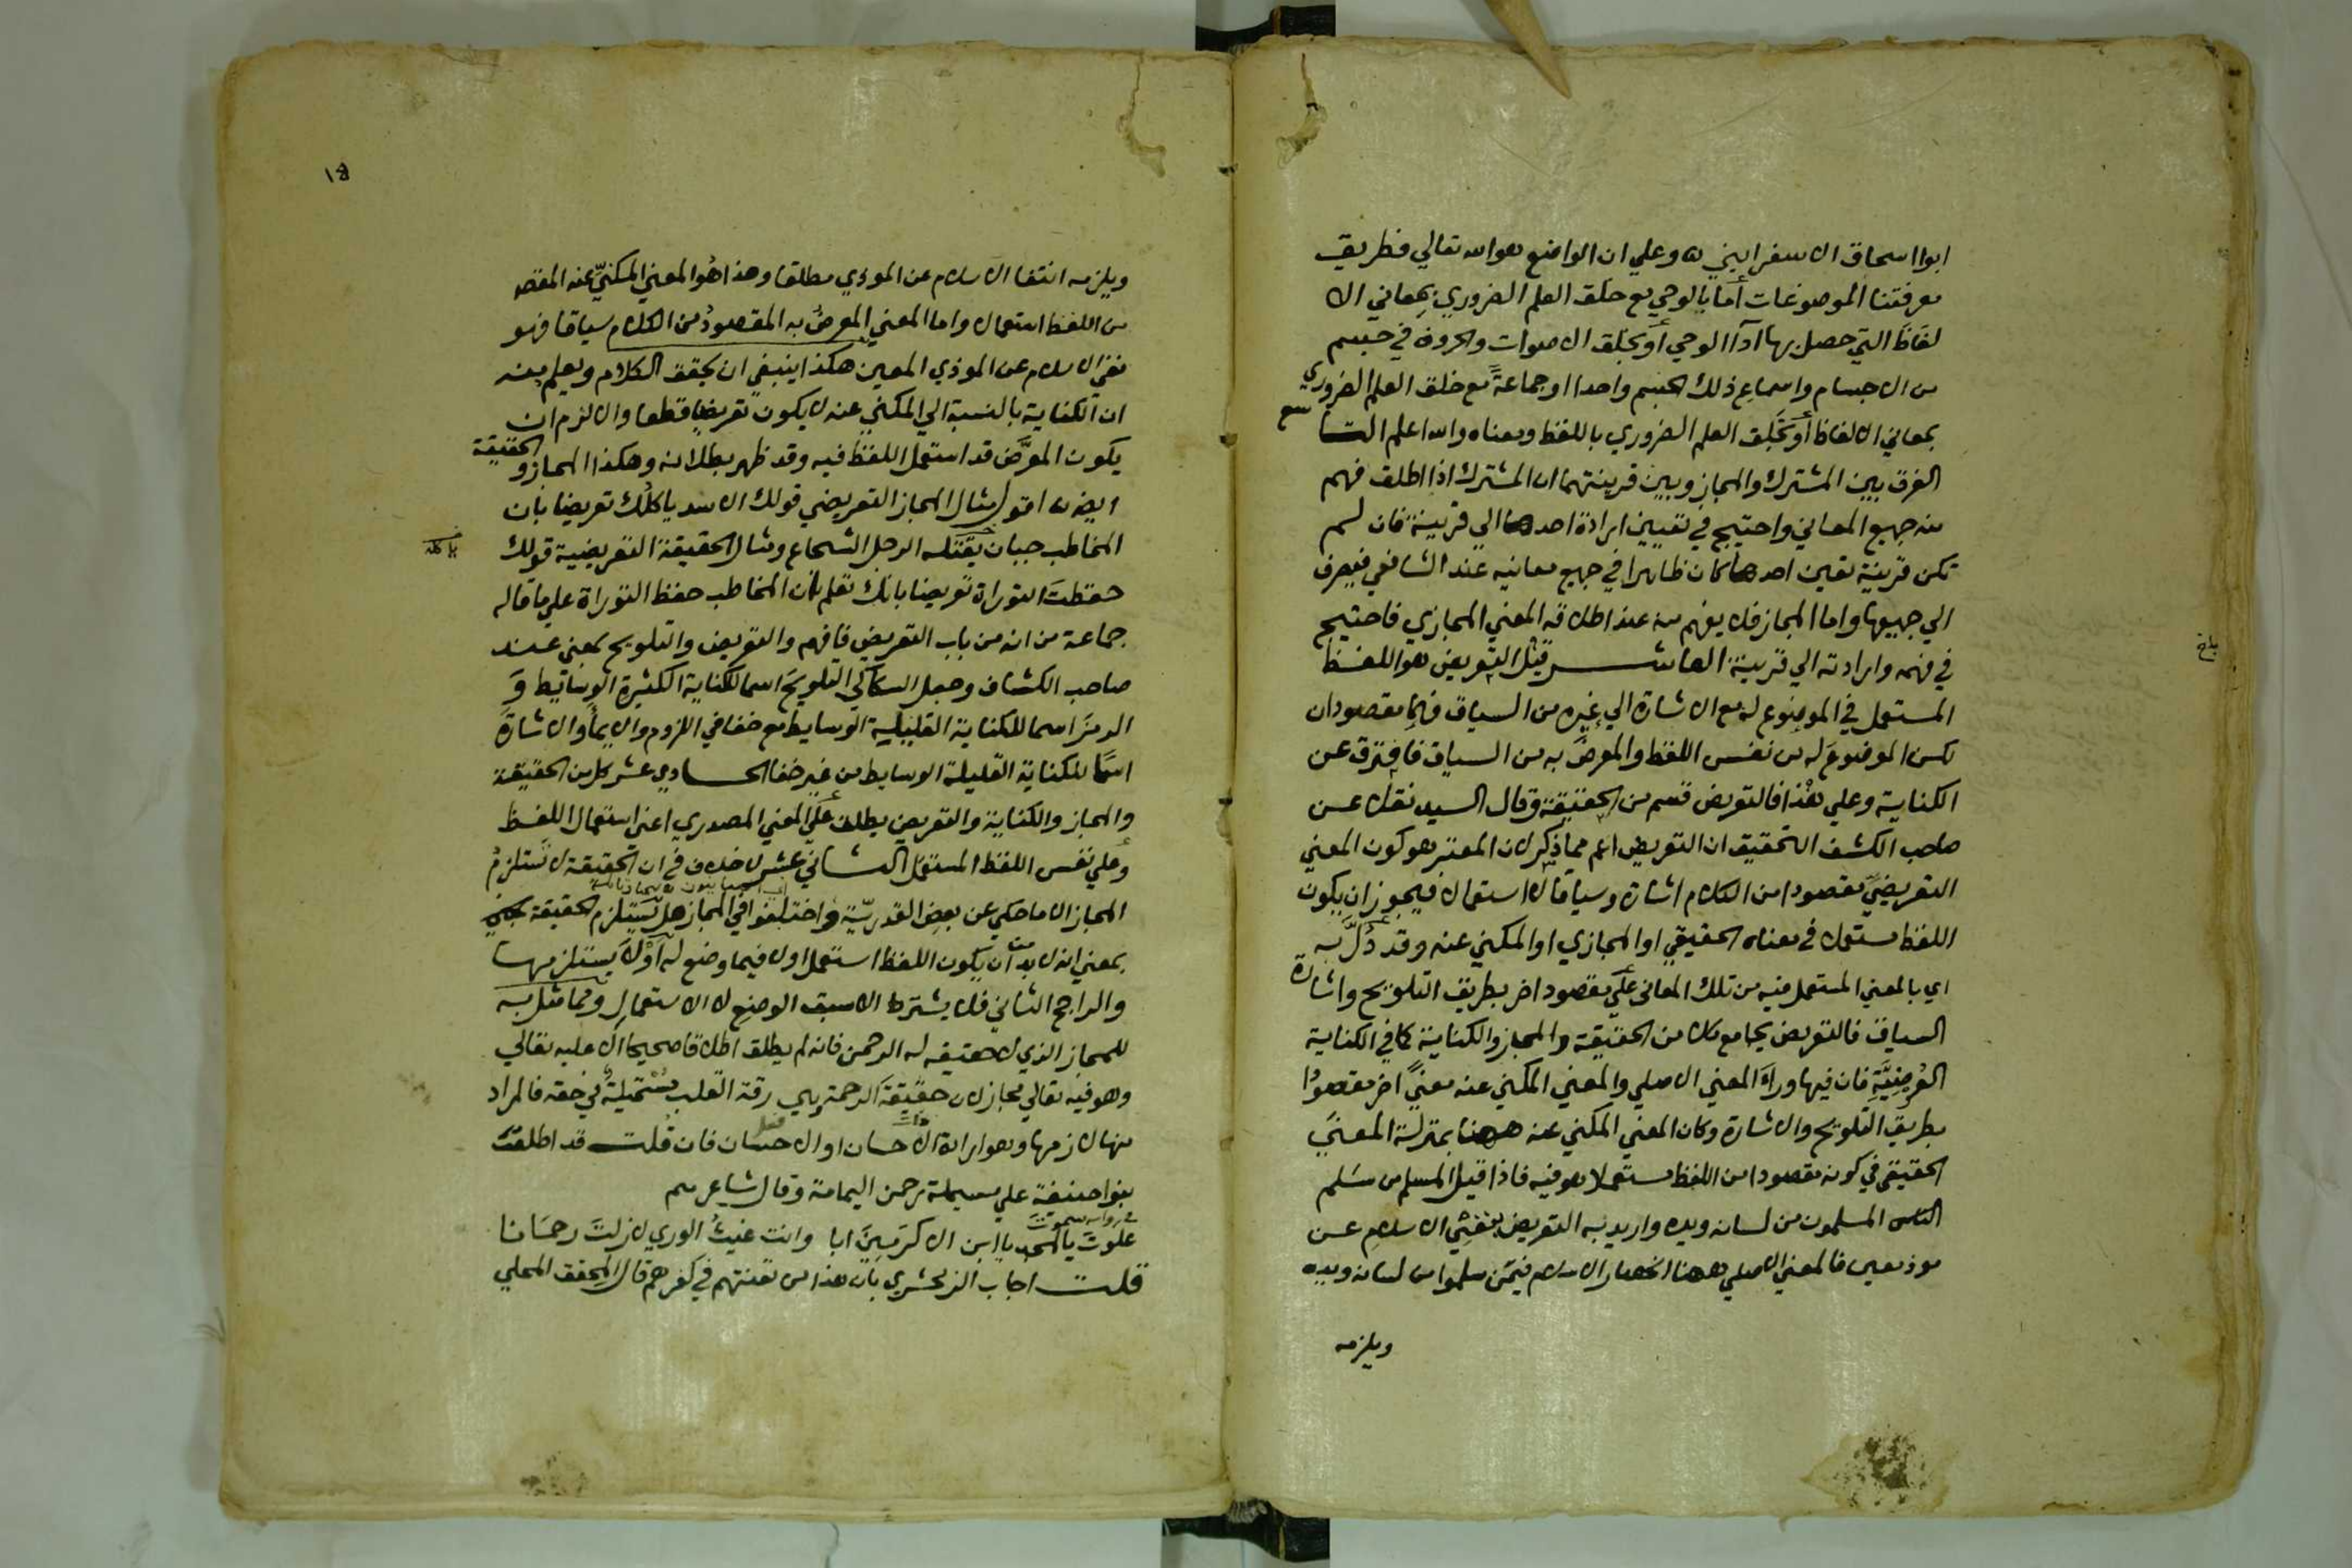 ابوا اسحاق الاسفرايني ه وعلي ان الواضع هو الله تعالي فطريق
معرفتنا الموضوعات أما بالوحي مع خلق العلم الضروري بمعاني الا
لفاظ التي حصل بها اداا الوحي أو بخلق الاصوات والحروف في جسم
من الاجسام واسماع ذلك الجسم واحدا او جماعة مع خلق العلم الضروري
بمعاني الالفاظ أو بخلق العلم الضروري باللفظ ومعناه والله اعلم التاسع
الفرق بين المشترك والمجاز وبين قرينتهما ان المشترك اذا اطلق فهم
منه جميع المعاني واحتيج في تعيين ارادة احدها الي قرينة فان لم
تكن قرينة تعين احدها كان ظاهرا في جميع معانيه عند الشافعي فيصرف
الي جميعها واما المجاز فلا يفهم منه عند اطلاقه المعني المجازي فاحتيج
في فهمه وارادته الي قرينة العاشر قيل التعريض هو اللفظ
المستعمل في الموضوع له مع الاشارة الي غيره من السياق فهما مقصودان
لكن الموضوع له من نفس اللفظ والمعرض به من السياق فافترق عن
الكناية وعلي هذا فالتعريض قسم من الحقيقة وقال السيد نقلا عن
صاحب الكشف التحقيق ان التعريض اعم مما ذكر لان المعتبر هو كون المعني
التعريضي مقصودا من الكلام اشارة وسياقا لا استعمالا فيجوز ان يكون
اللفظ مستعملا في معناه الحقيقي او المجازي او المكني عنه وقد دُلَّ به
اي بالمعني المستعمل فيه من تلك المعاني علي مقصود اخر بطريق التلويح واشارة
السياق فالتعريض يجامع كلا من الحقيقة والمجاز والكناية كما في الكناية
العُرضيَّةِ فان فيها وراَء المعني الاصلي والمعني المكني عنه معنيً اخر مقصودا
بطريق التلويح والاشارة وكان المعني المكني عنه ههنا بمنزلة المعني
الحقيقي في كونه مقصودا من اللفظ مستعملا هو فيه فاذا قيل المسلم من سَلم
الناس المسلمون من لسانه ويده واريد به التعريض بنفي الاسلام عن
موذ معين فالمعني الاصلي ههنا انحصار الاسلام فيمن سلموا من لسانه ويده
ويلزمه
ويلزمه انتفا الاسلام عن الموذي مطلقا وهذا هو المعني المكنيّ عنه المقص
من اللفظ استعمالا واما المعني المعرضُ به المقصودُ من الكلام سياقا فهو
نفي الاسلام عن الموذي المعين هكذا ينبغي ان يحقق الكلام ويعلم منه
ان الكناية بالنسبة الي المكني عنه لا يكون تعريضا قطعا والا لزم ان
يكون المعرَّض قد استعمل اللفظ فيه وقد ظهر بطلانه وهكذا المجاز و الحقيقة
ايضا ه اقول مثال المجاز التعريضي قولك الاسد ياكلُك تعريضا بان
المخاطب جبان يقتله الرجل الشجاع ومثال الحقيقة التعريضية قولك
حفظتَ التوراة تعريضا بانك تعلم بان المخاطب حفظ التوراة علي ما قاله
جماعة من انه من باب التعريض فافهم والتعريض والتلويح بمعني عند
صاحب الكشاف وجعل السكاكي التلويحَ اسما للكناية الكثيرة الوسائط وَ
الرمزَ اسما للكناية القليلية الوسايط مع خفا في اللزوم والايمأَ والاشارةَ
اسمًا للكناية القليلة الوسايط من غير خفا الحادي عشر كل من الحقيقة
والمجاز والكناية والتعريض يطلق علي المعني المصدري اعني استعمال اللفظ
وعلي نفس اللفظ المستعمل الثاني عشر لا خلاف في ان الحقيقة لا تستلزمُ
المجاز الا ما حكي عن بعض القدريّة واختلفوا في المجاز هل يستلزم الحقيقة
بمعني انه لابد أن يكون اللفظ استعمل اولا فيما وضع له أوْلا يستلزمها
والراجح الثاني فلا يشترط الا سبق الوضع لا الاستعمال ومما مثل به
للمجاز الذي لا حقيقه له الرحمن فانه لم يطلق اطلاقا صحيحا الا عليه تعالي
وهو فيه تعالي مجاز لان حقيقة الرحمة وهي رقة القلب مستحيلة في حقه فالمراد
منها لازمها وهو ارادة الاحسان او الاحسان فان قلت قد اطلقت
بنوا حنيفة علي مسيلمة رحمن اليمامة وقال شاعرهم
علوتَ بالمجد يا ابن الاكرَمِينَ ابا وانت غيثُ الوري لا زلتَ رحمَانا
قلت اجاب الزمخشري بان هذا من تعنتهم في كفرهم قال المحقق المحلي